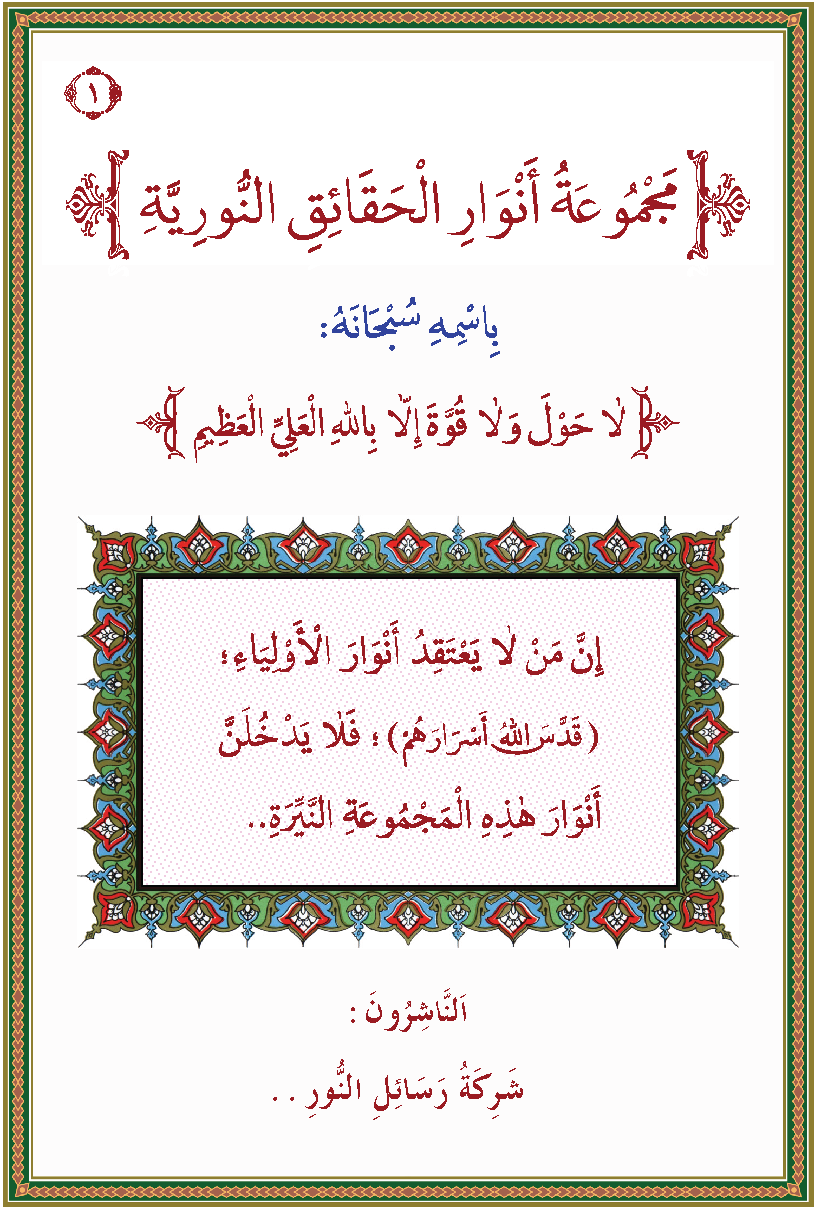 ١
مَجْمُوعَةُ أَنْوَارِ الْحَقَائِقِ النُّورِيَّةِ
بِاسْمِهِ سُبْحَانَهُ:
لَا حَوْلَ وَلَا قُوَّةَ إِلَّا بِاللهِ الْعَلِيِّ الْعَظِيمِ
إِنَّ مَنْ لَا يَعْتَقِدُ أَنْوَارَ الْأَوْلِيَاءِ؛
(قَدَّسَ اللهُ أَسْرَارَهُمْ)؛ فَلَا يَدْخُلَنَّ
أَنْوَارَ هٰذِهِ الْمَجْمُوعَةِ النَّيِّرَةِ..
اَلنَّاشِرُونَ:
شَرِكَةُ رَسَائِلِ النُّورِ..